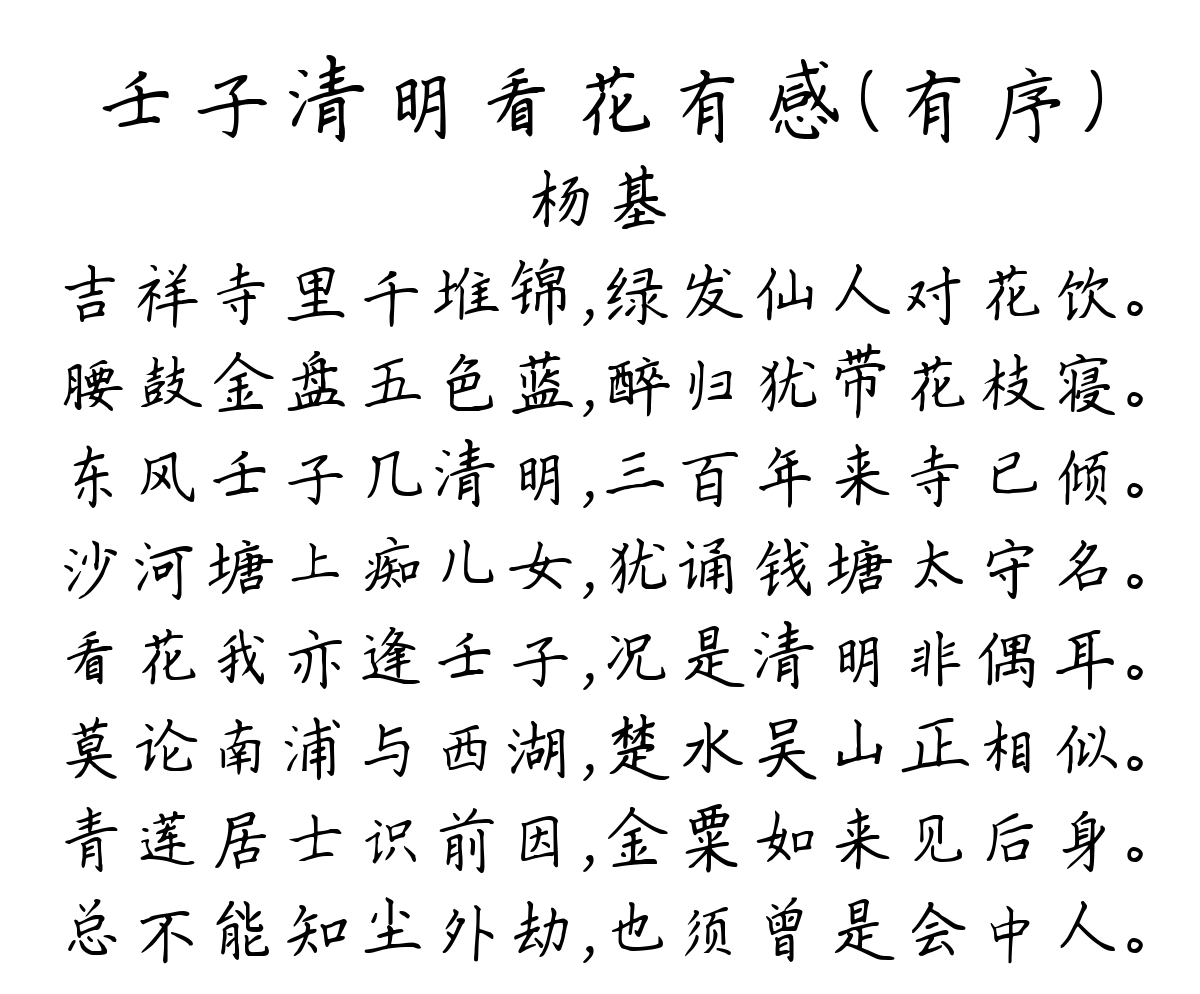 壬子清明看花有感(有序)
杨基
吉祥寺里千堆锦,绿发仙人对花饮。
腰鼓金盘五色蓝,醉归犹带花枝寝。
东风壬子几清明,三百年来寺已倾。
沙河塘上痴儿女,犹诵钱塘太守名。
看花我亦逢壬子,况是清明非偶耳。
莫论南浦与西湖,楚水吴山正相似。
青莲居士识前因,金粟如来见后身。
总不能知尘外劫,也须曾是会中人。